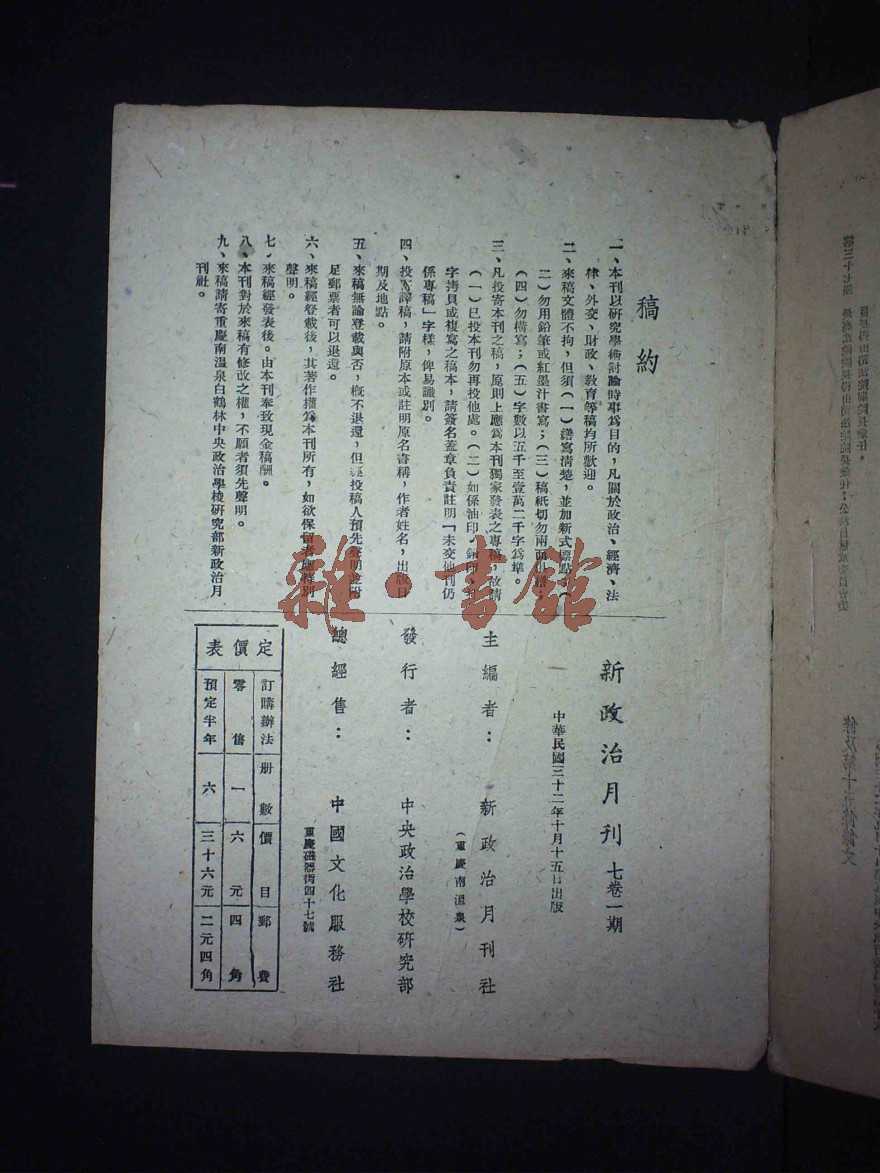 稿約
一、本刊以研究學術討論時事爲目的，凡關於政治、經濟、法
律、外交、財政、教育等稿均所歡迎。
二、來稿文體不拘，但須（一）繕寫清楚，並加新式標點；（
二）勿用鉛筆或紅墨汁書寫；（三）稿紙切勿兩面
（四）勿橫寫；（五）字數以五千至壹萬二千字爲準。
三、凡投寄本刊之稿，原則上應爲本刊獨家發表之專稿，故請
（一）已投本刊勿再投他處。（二）如係油印、
字拷貝或複寫之稿本，請簽名蓋章負責註明「未交他刊仍
係專稿」字樣，俾易識別。
四、投寄譯稿，請附原本或註明原名書稱，作者姓名，出版日
期及地點。
五、來稿無論登載與否，槪不退還，但經投稿人預先聲明並附
足郵票者可以退還。
六、來稿經登載後，其著作權爲本刊所有，如欲保留者應特別
聲明。
七、來稿經發表後。由本刊奉致現金稿酬。
八、本刊對於來稿有修改之權，不願者須先聲明。
九、來稿請寄重慶南溫泉白鶴林中央政治學校研究部新政治月
刊社。
新政治月刊 七卷一期
中華民國三十二年十月十五日出版
主編者： 新政治月刊社
（重慶南溫泉）
發行者： 中央政治學校研究部
總經售： 中國文化服務社
重慶磁器街四十七號
定價表
訂購辦法 册數 價目 郵費
零售 一 六元 四角
預定半年 六 三十六元 二元四角
雜·書館